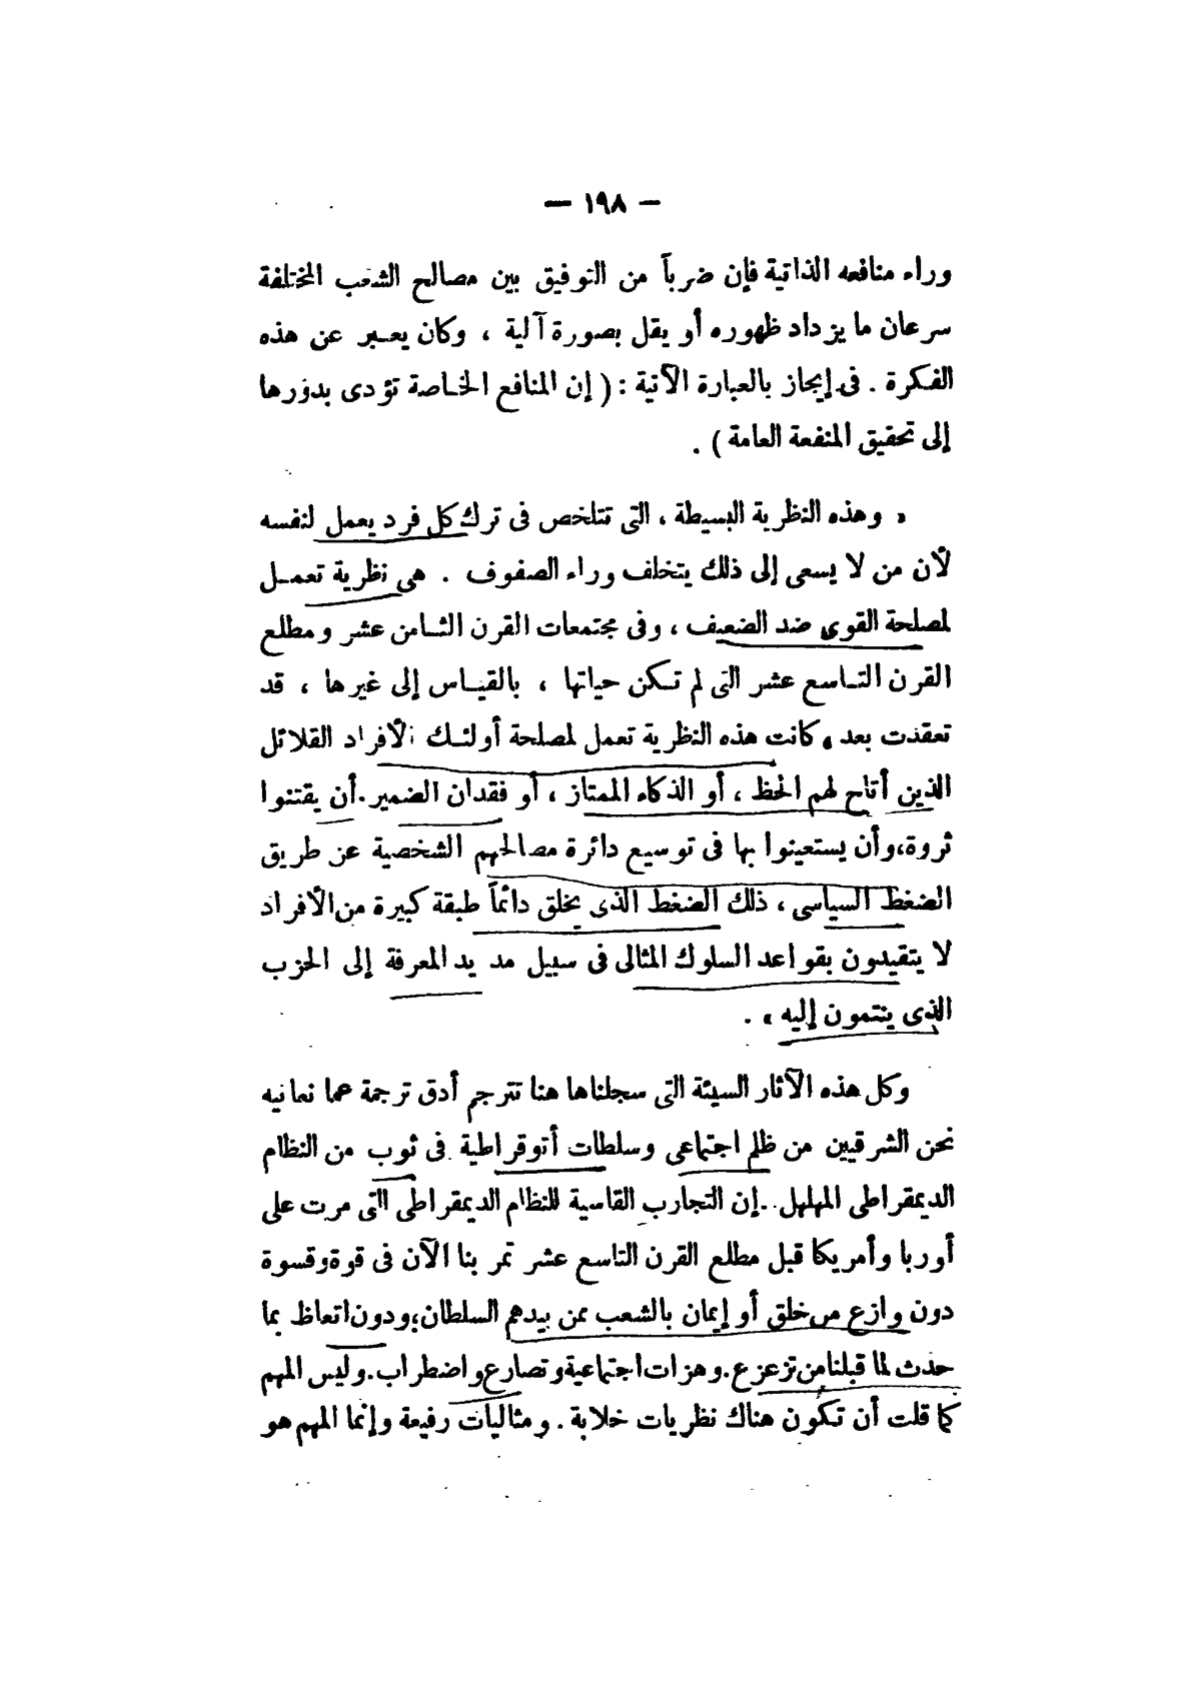 — ١٩٨ —
وراء منافعه الذاتية فإن ضرباً من التوفيق بين مصالح الشعب المختلفة
سرعان ما يزداد ظهوره أو يقل بصورة آلية ، وكان يعبر عن هذه
الفكرة . فى إيجاز بالعبارة الآتية : ( إن المنافع الخاصة تؤدى بدورها
إلى تحقيق المنفعة العامة ) .
« وهذه النظرية البسيطة ، التى تتلخص فى ترك كل فرد يعمل لنفسه
لأن من لا يسعى إلى ذلك يتخلف وراء الصفوف . هى نظرية تعمل
لمصلحة القوى ضد الضعيف ، وفى مجتمعات القرن الثامن عشر ومطلع
القرن التاسع عشر التى لم تكن حياتها ، بالقياس إلى غيرها ، قد
تعقدت بعد ، كانت هذه النظرية تعمل لمصلحة أولئك الأفراد القلائل
الذين أتاح لهم الحظ ، أو الذكاء الممتاز ، أو فقدان الضمير . أن يقتنوا
ثروة، وأن يستعينوا بها فى توسيع دائرة مصالحهم الشخصية عن طريق
الضغط السياسى ، ذلك الضغط الذى يخلق دائماً طبقة كبيرة من الأفراد
لا يتقيدون بقواعد السلوك المثالى فى سبيل مد يد المعرفة إلى الحزب
الذى ينتمون إليه » .
وكل هذه الآثار السيئة التى سجلناها هنا تترجم أدق ترجمة عما نعانيه
نحن الشرقيين من ظلم اجتماعى وسلطات أتوقراطية فى ثوب من النظام
الديمقراطى المهلهل . إن التجارب القاسية للنظام الديمقراطى التى مرت على
أوربا وأمريكا قبل مطلع القرن التاسع عشر تمر بنا الآن فى قوة وقسوة
دون وازع من خلق أو إيمان بالشعب ممن بيدهم السلطان؛ ودون اتعاظ بما
حدث لما قبلنا من تزعزع . وهزات اجتماعية وتصارع واضطراب . وليس المهم
كما قلت أن تكون هناك نظريات خلابة . ومثاليات رفيعة وإنما المهم هو